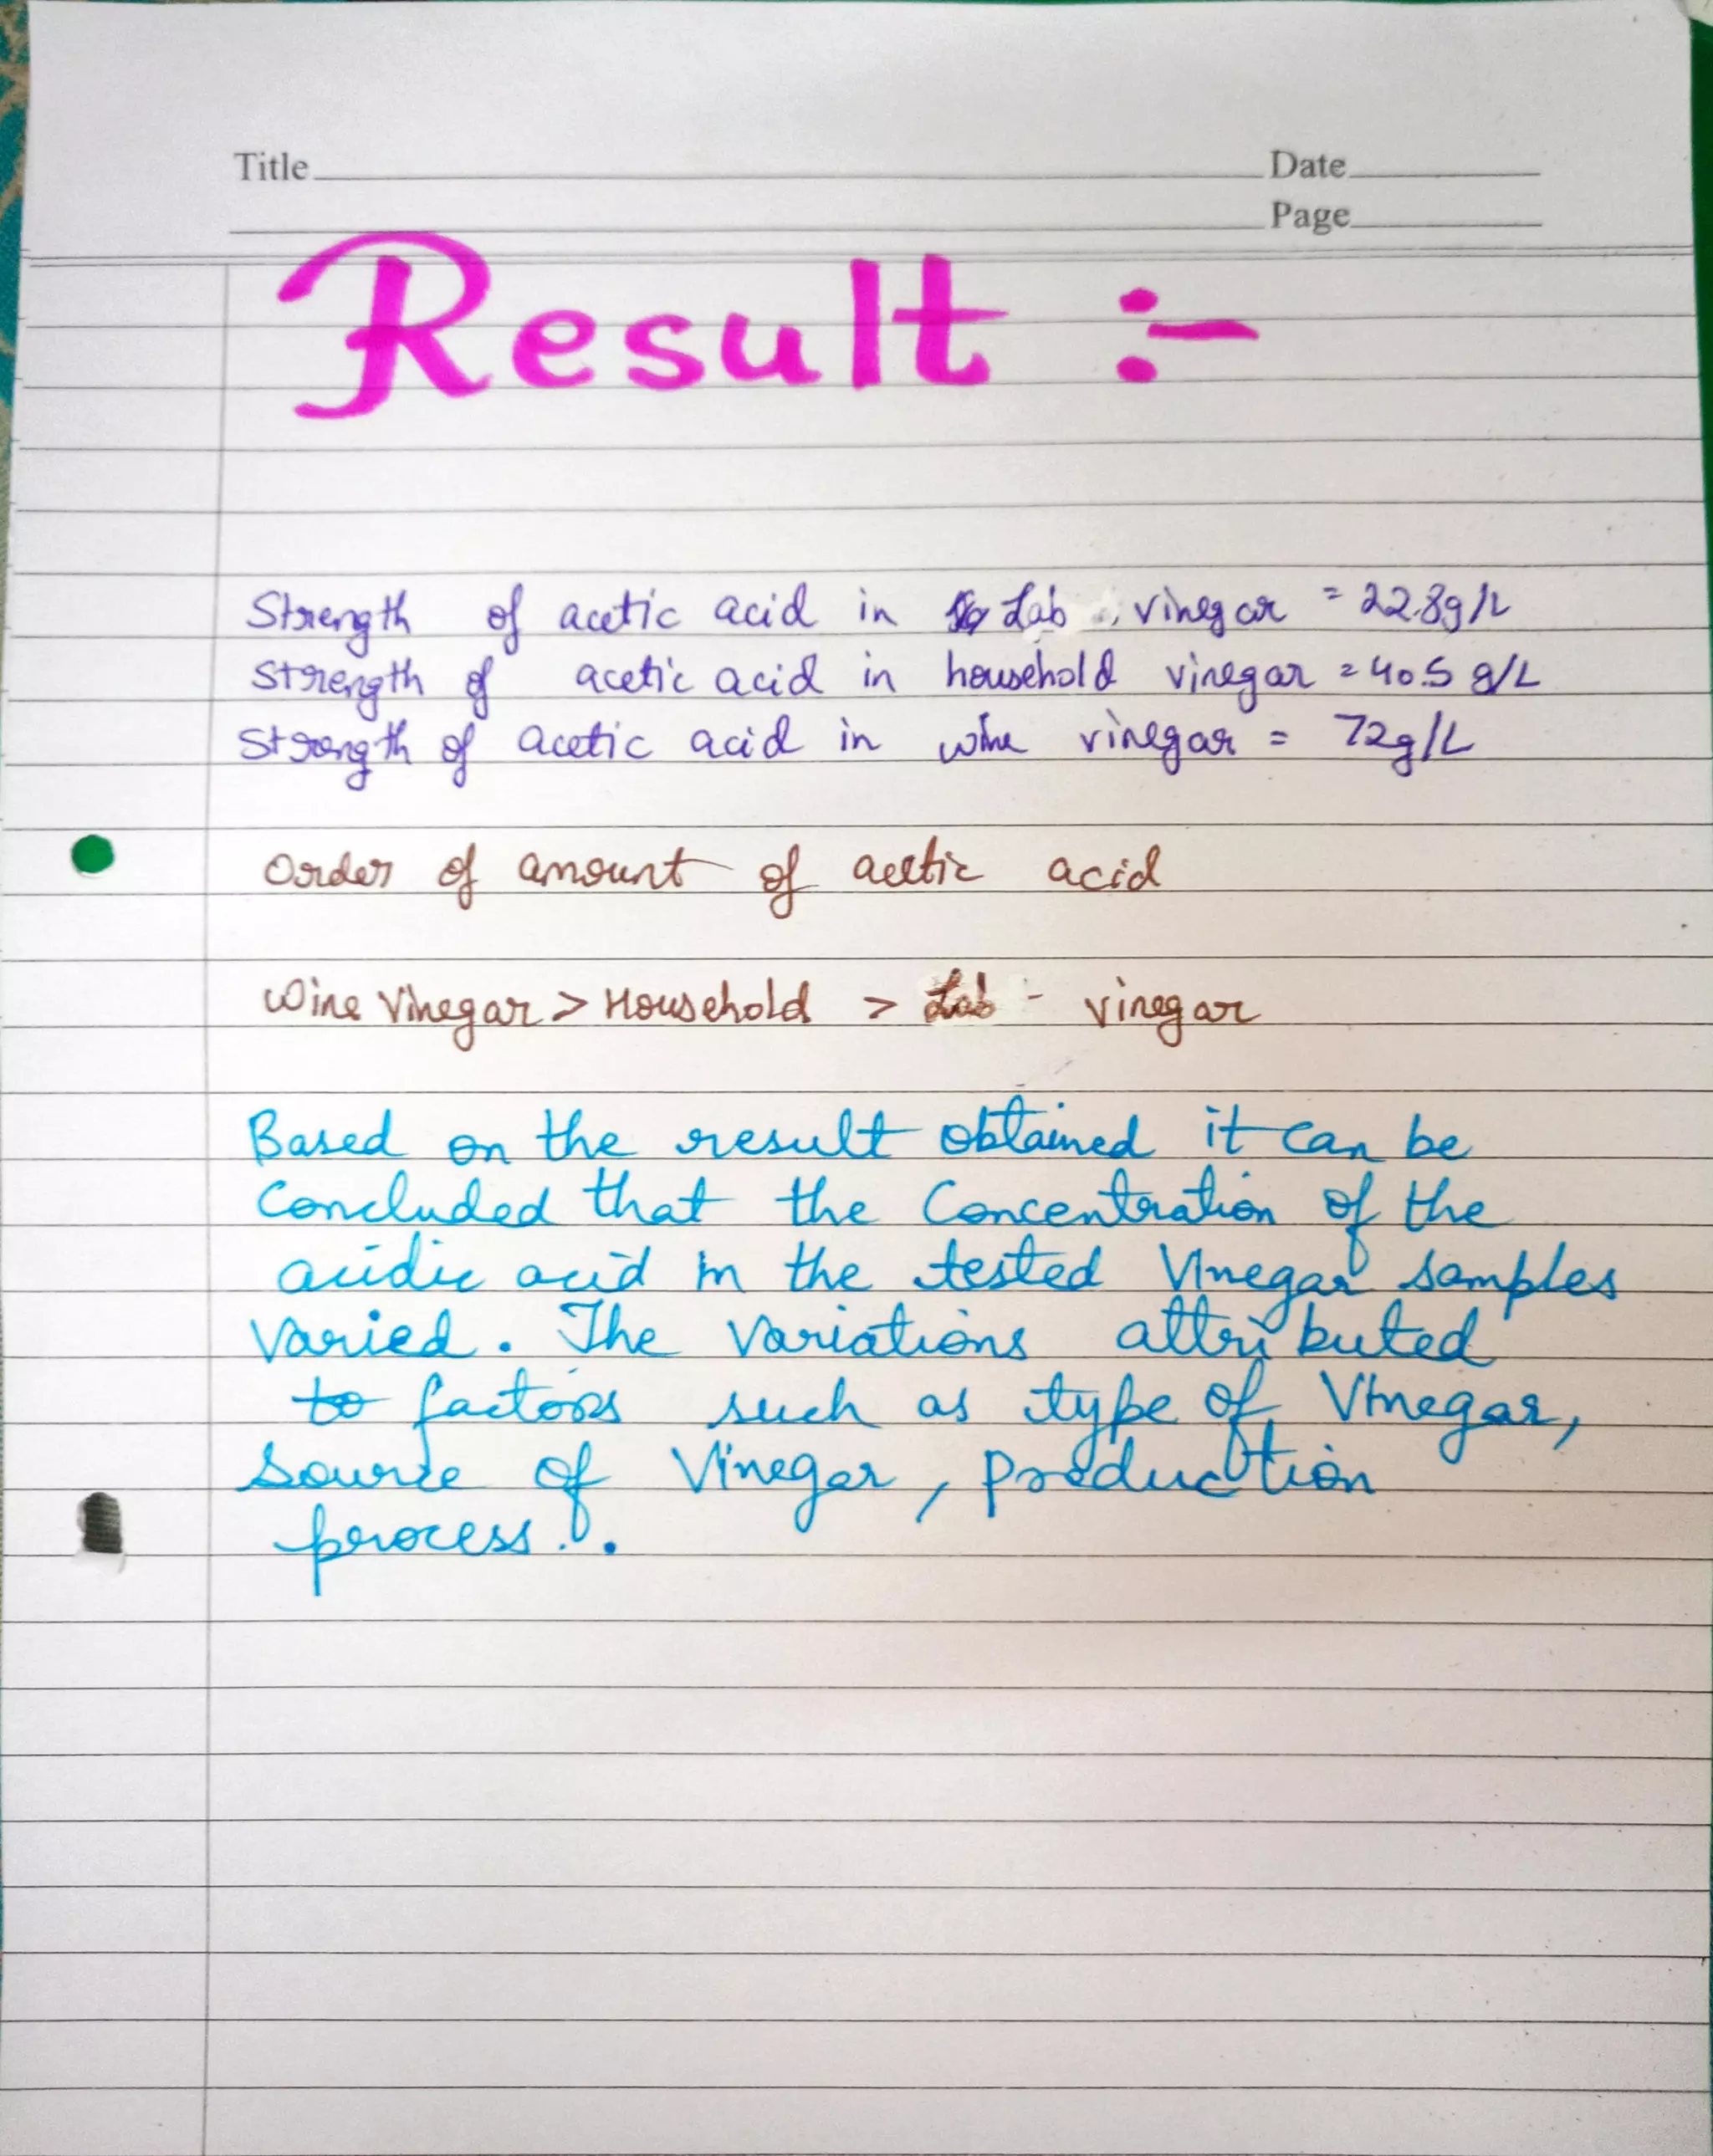 Title Date
Page
Result :-
Strength of acetic acid in Lab vinegar = 22.8g/L
Strength of acetic acid in household vinegar = 40.5 g/L
Strength of acetic acid in wine vinegar = 72g/L
Order of amount of acetic acid
Wine Vinegar > Household > Lab - vinegar
Based on the result obtained it can be
Concluded that the Concentration of the
acidic acid in the tested Vinegar samples
Varied. The Variations attributed
to factors such as type of Vinegar,
Source of Vinegar, production
process.